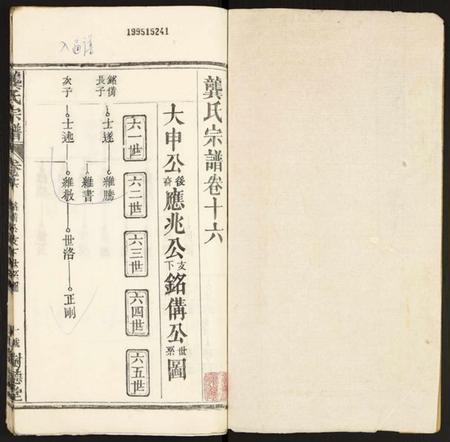 199515241
龔氏宗譜卷十六
大申公後裔應兆公支下銘備公世系圖
六一世
六二世
六三世
六四世
六五世
銘備長子
士遂
維勝
維書
次子
士述
維敬
世洛
正剛
龔氏宗譜
樹德堂